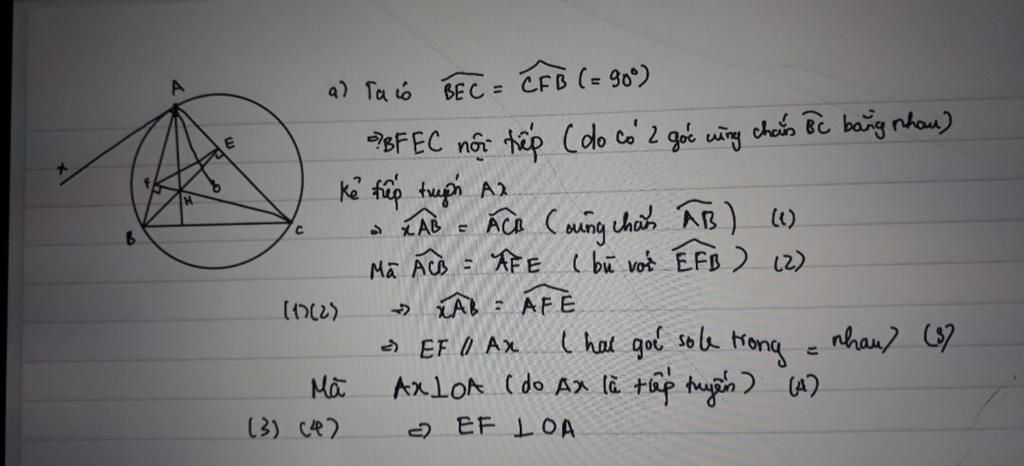 A
E
x
F
H
O
B
C
a) Ta có BEC = CFB (= 90°)
⇒ BFEC nội tiếp (do có 2 góc cùng chắn BC bằng nhau)
Kẻ tiếp tuyến Ax
⇒ xAB = ACB (cùng chắn AB) (1)
Mà ACB = AFE (bù với EFB) (2)
(1)(2) ⇒ xAB = AFE
⇒ EF // Ax (hai góc sole trong = nhau) (3)
Mà Ax ⊥ OA (do Ax là tiếp tuyến) (4)
(3) (4) ⇒ EF ⊥ OA